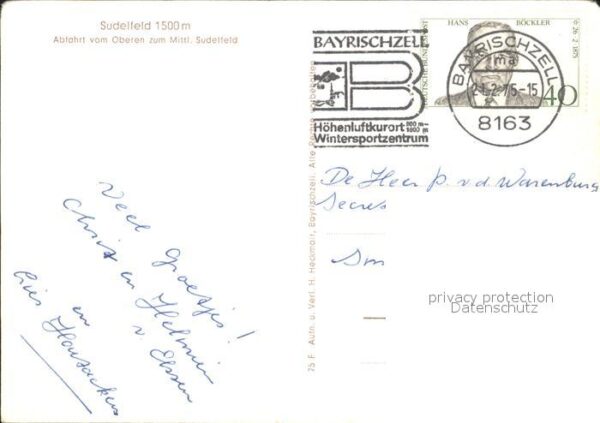 Sudelfeld 1500 m
Abfahrt vom Oberen zum Mittl. Sudelfeld
BAYRISCHZELL
B
Höhenluftkurort 800 m-1800 m
Wintersportzentrum
DEUTSCHE BUNDESPOST
HANS BÖCKLER
26.2.1875
40
BAYRISCHZELL
21.2.75-15
8163
De Heer P. v.d. Warenburg
Secres
Sm
privacy protection
Datenschutz
75 F Aufn. u. Verl. H. Heckmair, Bayrischzell. Alle Rechte vorbehalten
Veel Groetjes!
Christ en Helmien
v. Elssen
en
Cries en Housackers